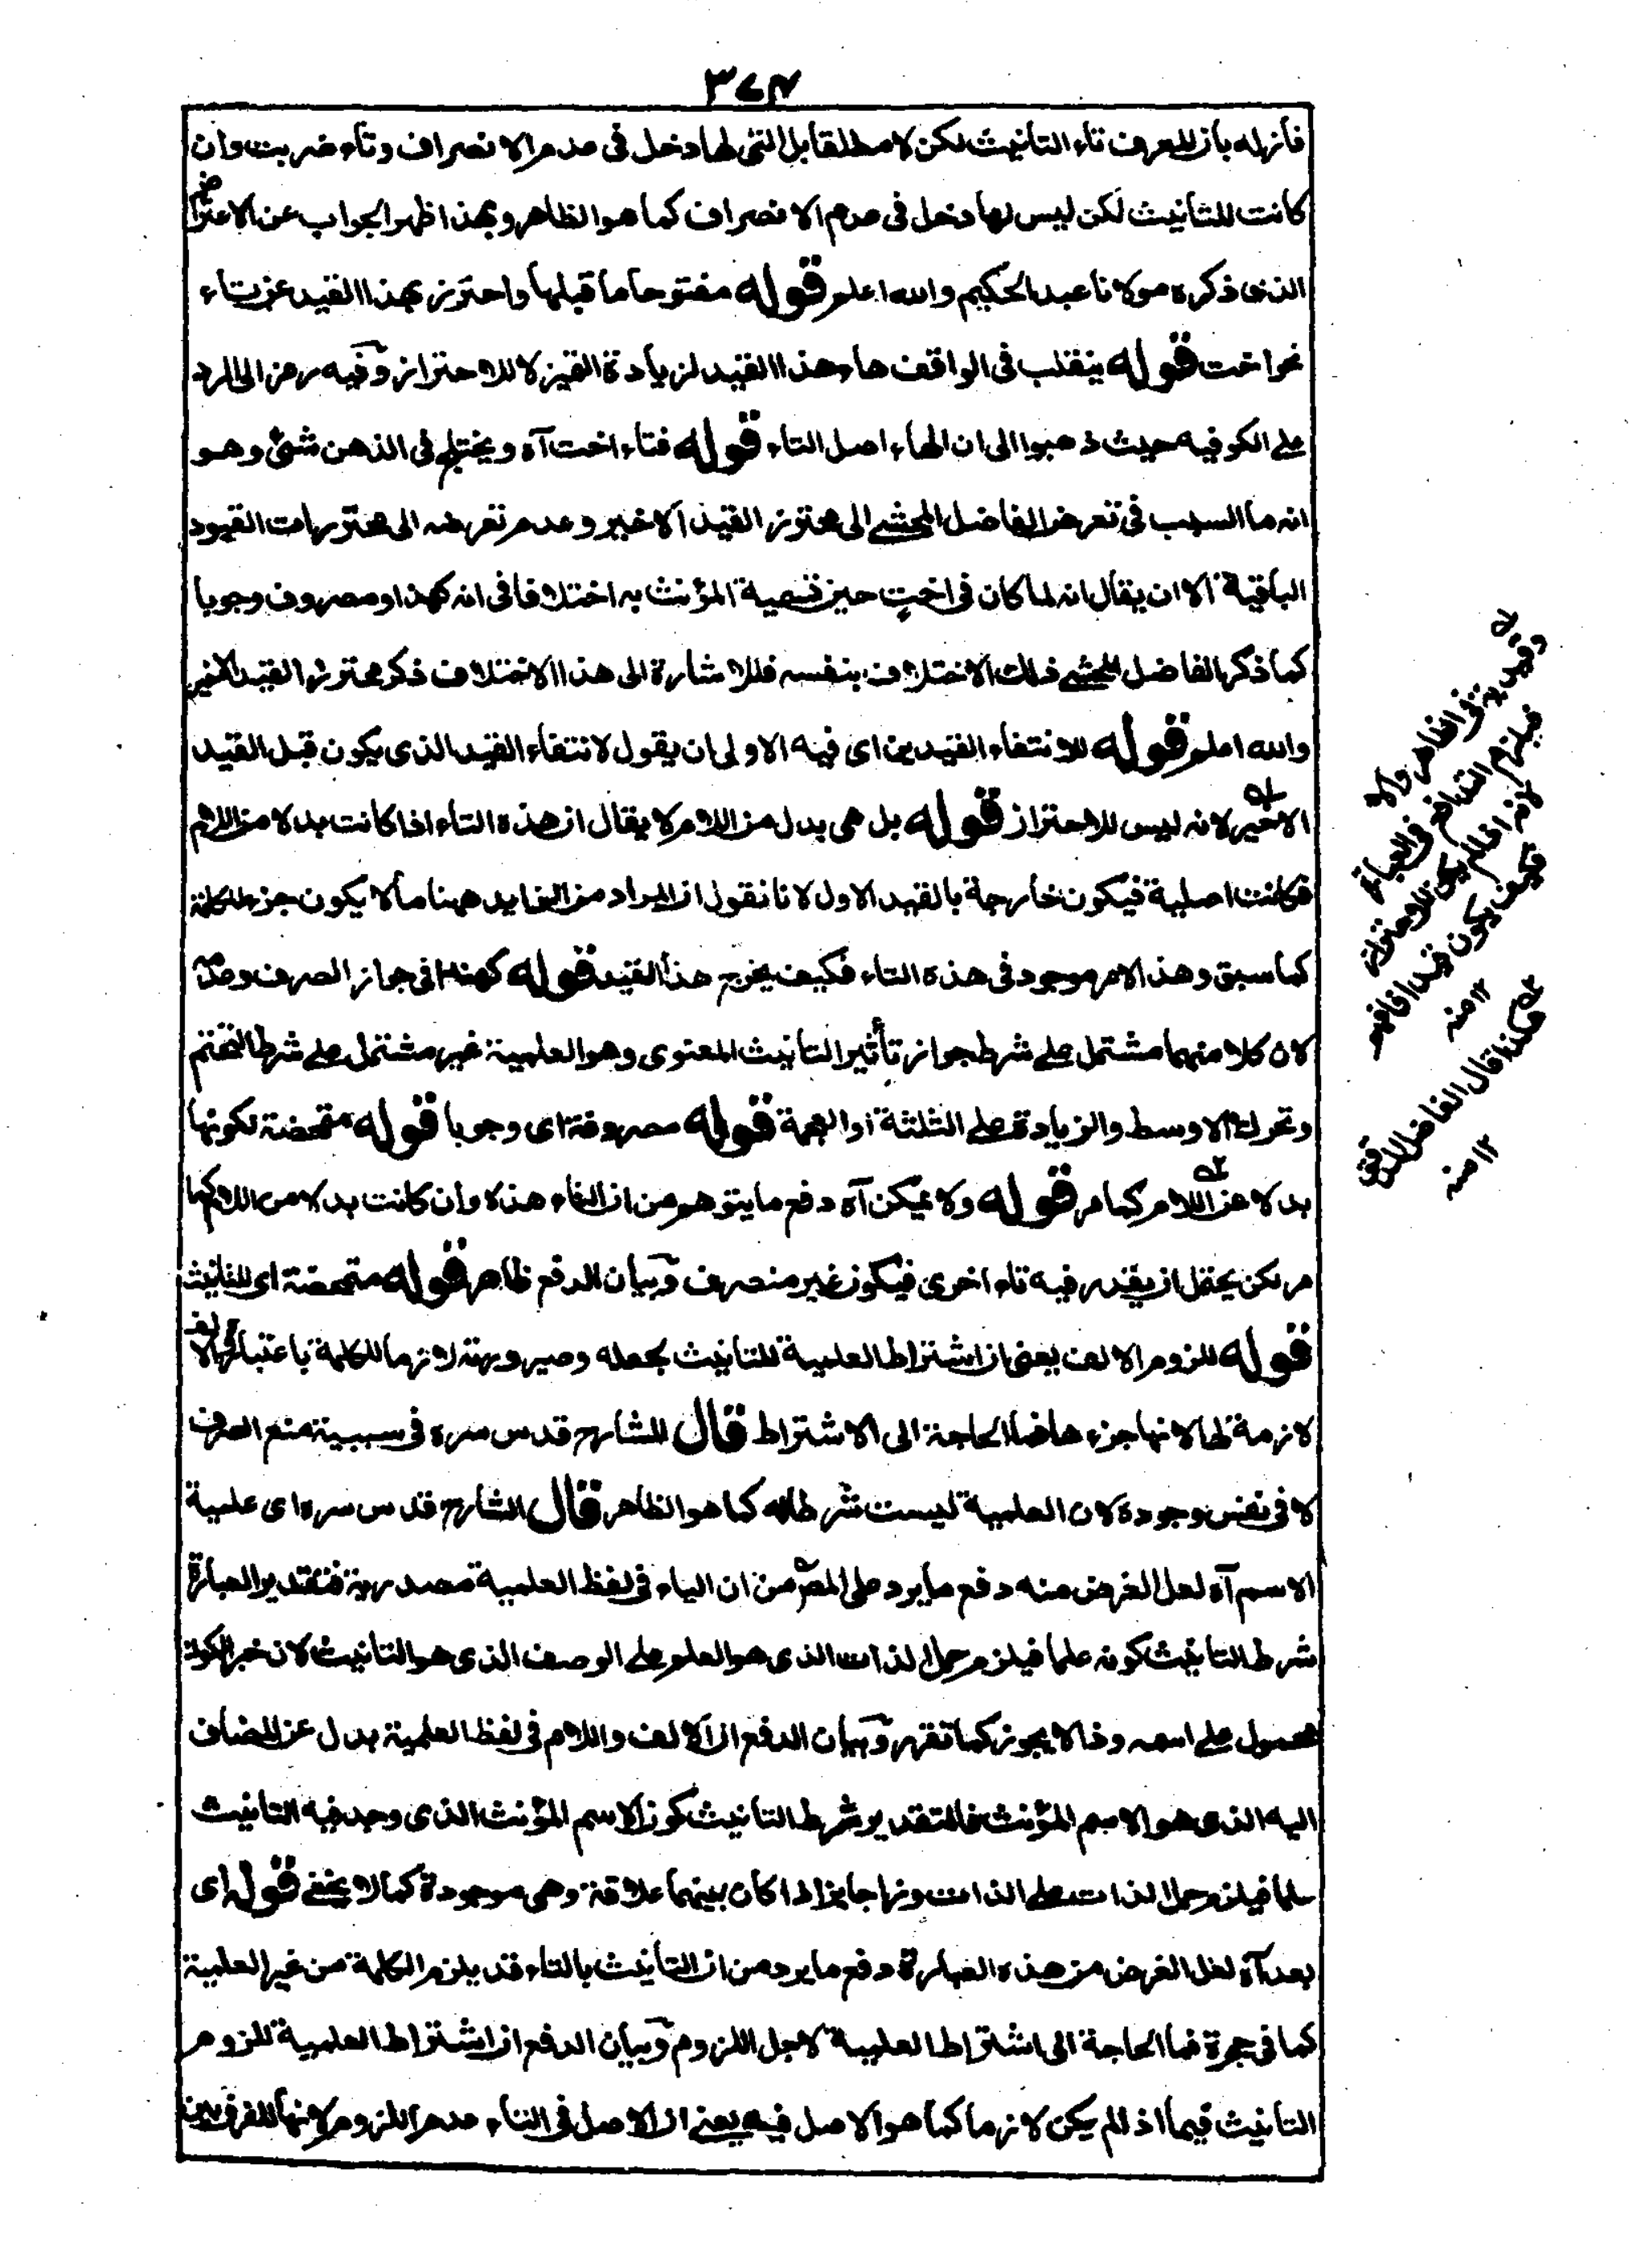 ٣٧٤
فأزله بان المعرف تاء التأنيث لكن لا مطلقا بل التى لها دخل فى عدم الانصراف وتاء ضربت وان
كانت للتأنيث لكن ليس لها دخل فى عدم الانصراف كما هو الظاهر وبهذا ظهر الجواب عن الاعتراض
الذى ذكره مولانا عبد الحكيم والله اعلم قوله مفتوحا ما قبلها واحترز بهذا القيد عن تاء
نحو اخت قوله ينقلب فى الواقف هاء هذا القيد لزيادة التميز لا للاحتراز وفيه رمز الى الرد
على الكوفيه حيث ذهبوا الى ان الهاء اصل التاء قوله فتاء اخت آه ويختلج فى الذهن شئ وهو
انه ما السبب فى تعرض الفاضل المحشے الى محترز القيد الاخير وعدم تعرضه الى محترزات القيود
الباقية الا ان يقال انه لما كان فى اخت حين تسمية المؤنث به اختلافا فى انه كهند او مصروف وجوبا
كما ذكر الفاضل المحشے ذلك الاختلاف بنفسه فللاشارة الى هذا الاختلاف ذكر محترز القيد الاخير
والله اعلم قوله للانتفاء القيدين اى فيه الاولى ان يقول لانتفاء القيد الذى يكون قبل القيد
الاخير لانه ليس للاحتراز قوله بل هى بدل من اللام لا يقال ان هذه التاء اذا كانت بدلا من اللام
فكانت اصلية فيكون خارجة بالقيد الاول لانا نقول ان المراد من الزايد ههنا ما لا يكون جزء للكلمة
كما سبق وهذا الامر موجود فى هذه التاء فكيف يخرج هذا القيد قوله كهند اى فى جواز الصرف وعدمه
لان كلا منهما مشتمل على شرط جواز تأثير التانيث المعنوى وهو العلمية غير مشتمل على شرط التحتم
وتحرك الاوسط والزيادة على الثلثة او العجمة قوله مصروفة اى وجوبا قوله متمحضة لكونها
بدلا عن اللام كما مر قوله ولا يمكن آه دفع ما يتوهم من ان التاء هذه وان كانت بدلا من اللام كما
مر لكن يحتمل ان يقدر فيه تاء اخرى فيكون غير منصرف وبيان الدفع ظاهر قوله متمحضة اى للتانيث
قوله للزوم الالف يعنى ان اشتراط العلمية للتانيث بجعله وصيرورته لازما للكلمة باعتبارها والالف
لازمة لها لانها جزءها فما الحاجة الى الاشتراط قال الشارح قدس سره فى سببية منع الصرف
لا فى نفس وجوده لان العلمية ليست شرطا له كما هو الظاهر قال الشارح قدس سره اى علمية
الاسم آه لعل الغرض منه دفع ما يرد على المص من ان الياء فى لفظ العلمية مصدرية فتقدير العبارة
شرط التانيث كونه علما فيلزم حمل الذات الذى هو العلم على الوصف الذى هو التانيث لان خبر الكون
محمول على اسمه وذا لا يجوز كما تقرر وبيان الدفع ان الالف واللام فى لفظ العلمية بدل عن المضاف
اليه الذى هو الاسم المؤنث فالتقدير شرط التانيث كون الاسم المؤنث الذى وجد فيه التانيث
علما فيلزم حمل الذات على الذات وذا جايز اذا كان بينهما علاقة وهى موجودة كما لا يخفے قوله اى
بعد آه لعل الغرض من هذه العبارة دفع ما يرد من ان التأنيث بالتاء قد يلزم الكلمة من غير العلمية
كما فى حجرة فما الحاجة الى اشتراط العلمية لاجل اللزوم وبيان الدفع ان اشتراط العلمية للزوم
التانيث فيما اذ الم يكن لازما كما هو الاصل فيه يعنے ان الاصل فى التاء عدم اللزوم لانها للفرق بين
وقيل يترز الظاهر والا
فيلزم التدافع فى العبارة
لانه اذا لم يكن للاحتراز
فكيف يكون قيدا فافهم
١٢ منه
هكذا قال الفاضل المدقق
١٢ منه